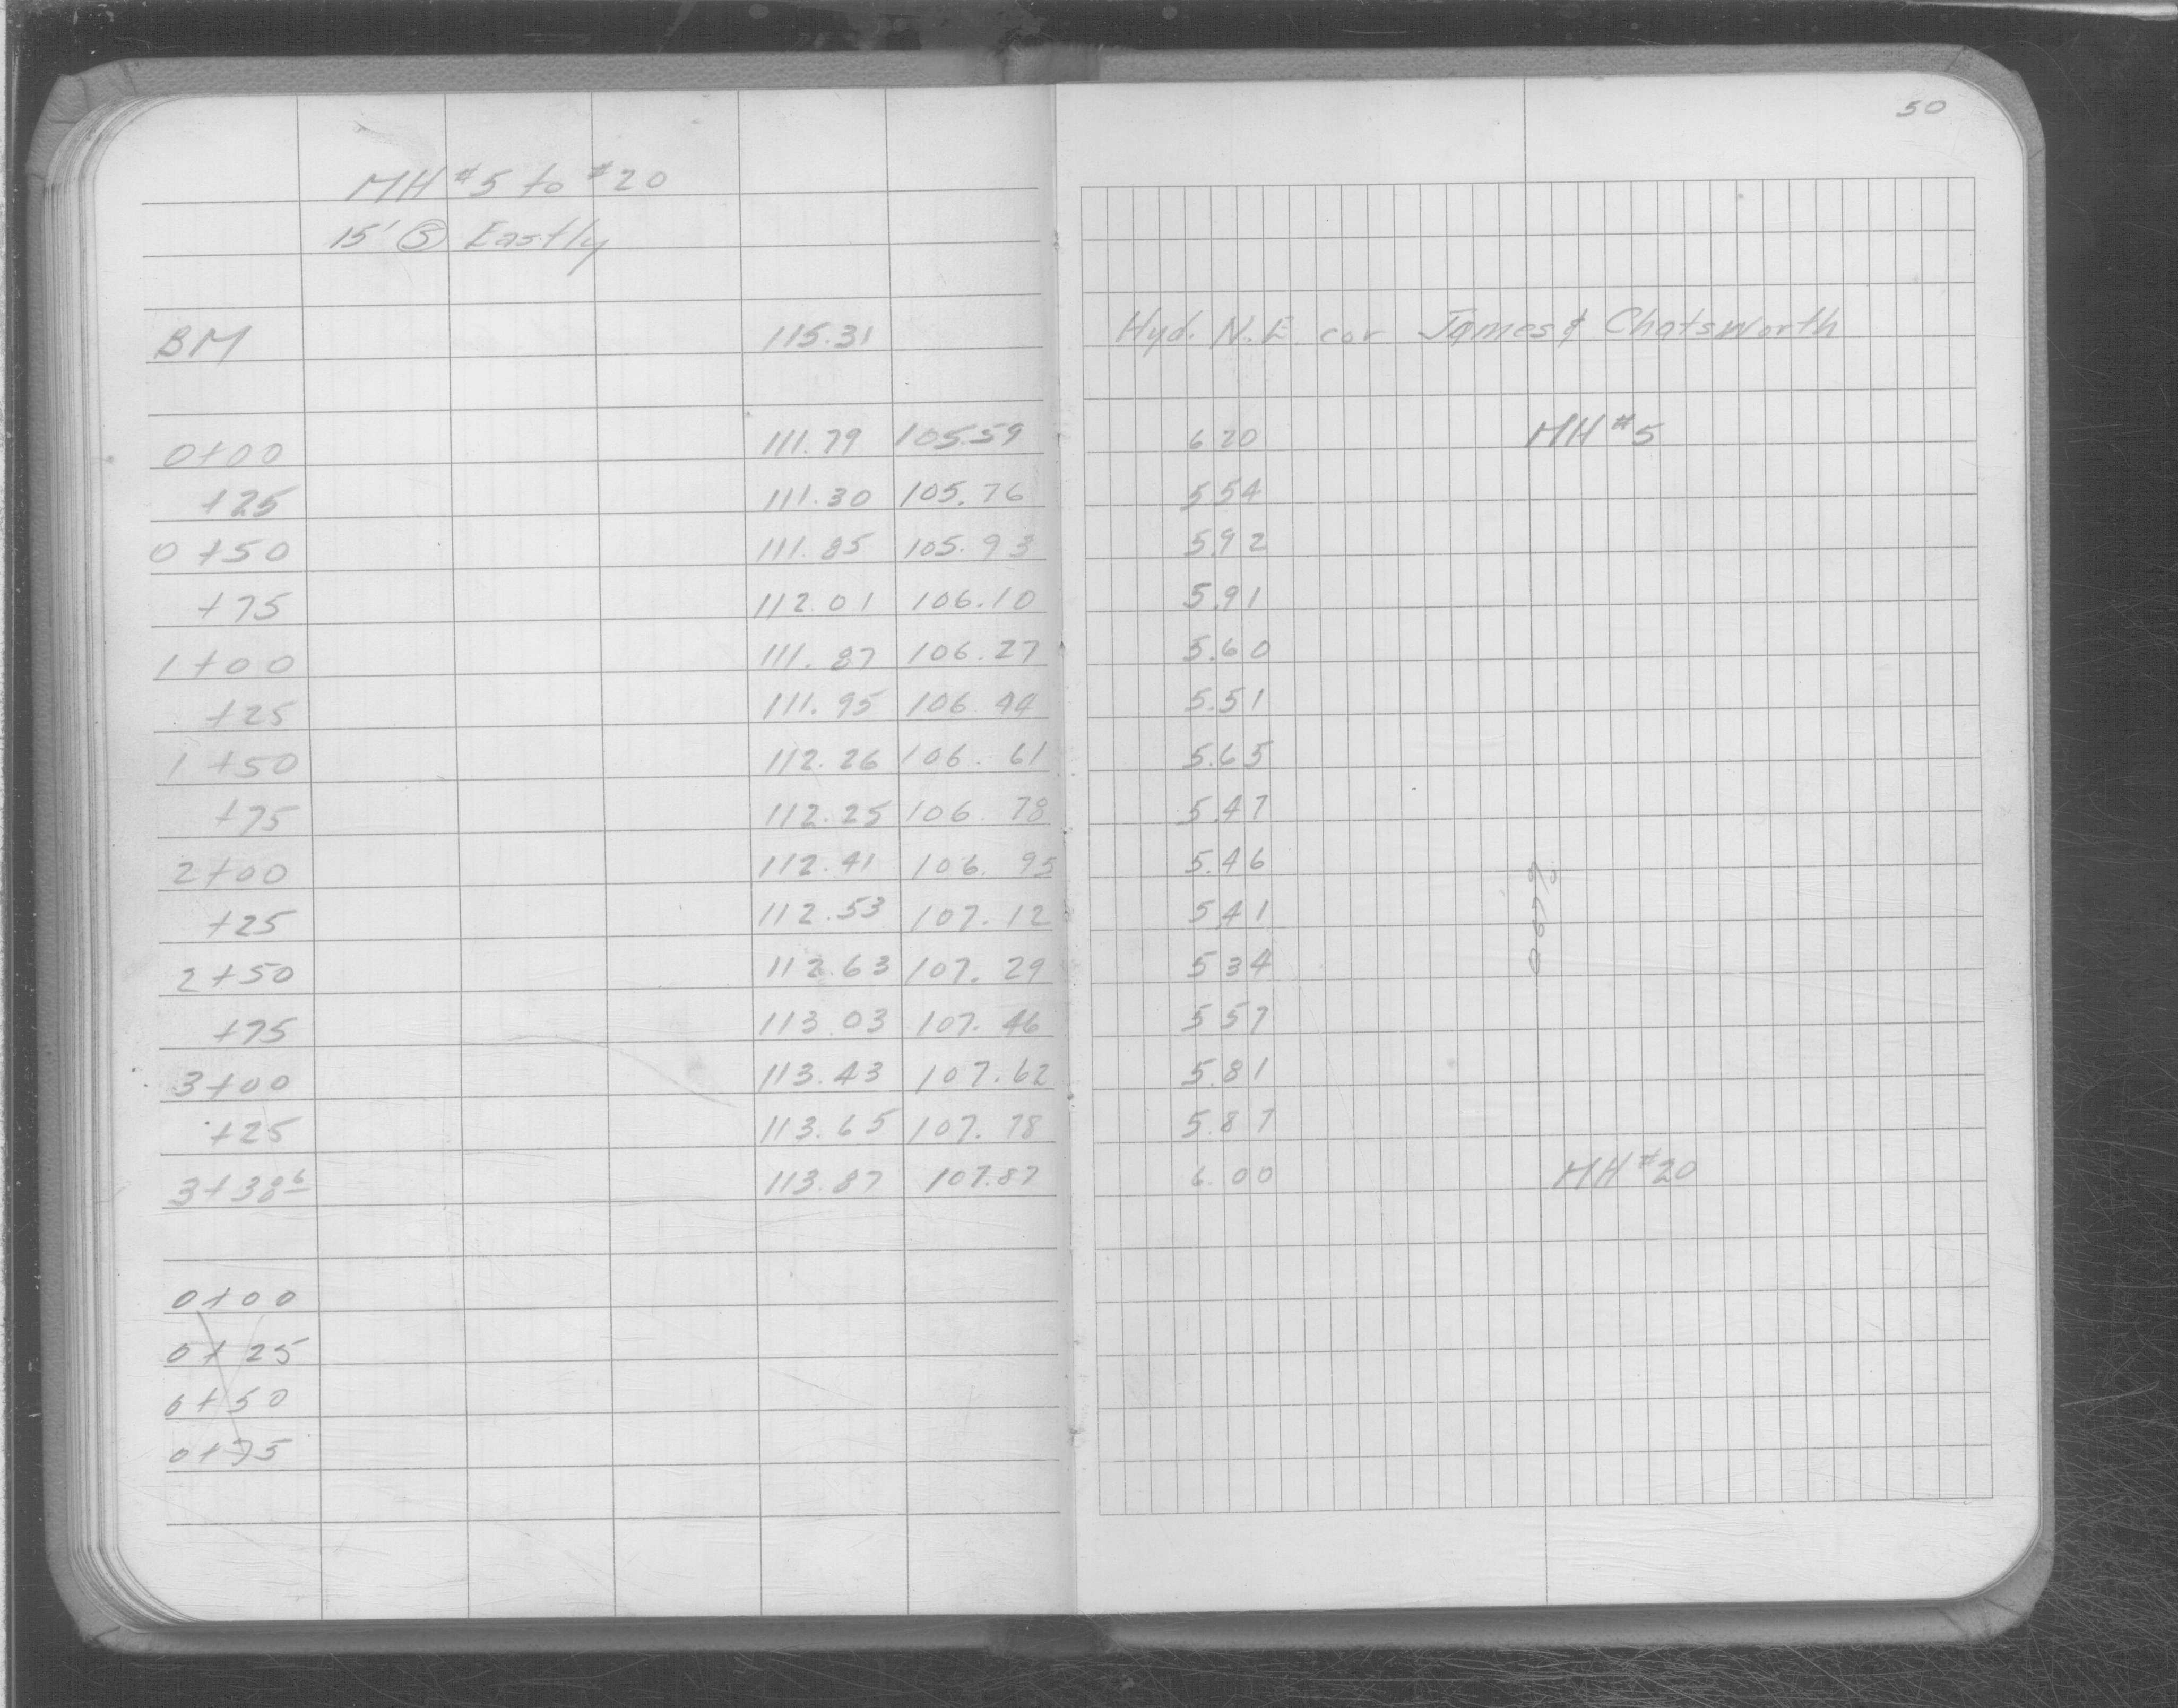 50
MH #5 to #20
15' Ⓢ Eastly
BM 115.31 Hyd. N.E. cor. James & Chatsworth
0+00 111.79 105.59 6.20 MH #5
+25 111.30 105.76 5.54
0+50 111.85 105.93 5.92
+75 112.01 106.10 5.91
1+00 111.87 106.27 5.60
+25 111.95 106.44 5.51
1+50 112.26 106.61 5.65
+75 112.25 106.78 5.47
2+00 112.41 106.95 5.46
+25 112.53 107.12 5.41
2+50 112.63 107.29 5.34
+75 113.03 107.46 5.57
3+00 113.43 107.62 5.81
+25 113.65 107.78 5.87
3+38 6 113.87 107.87 6.00 MH #20
0+00
0+25
0+50
0+75